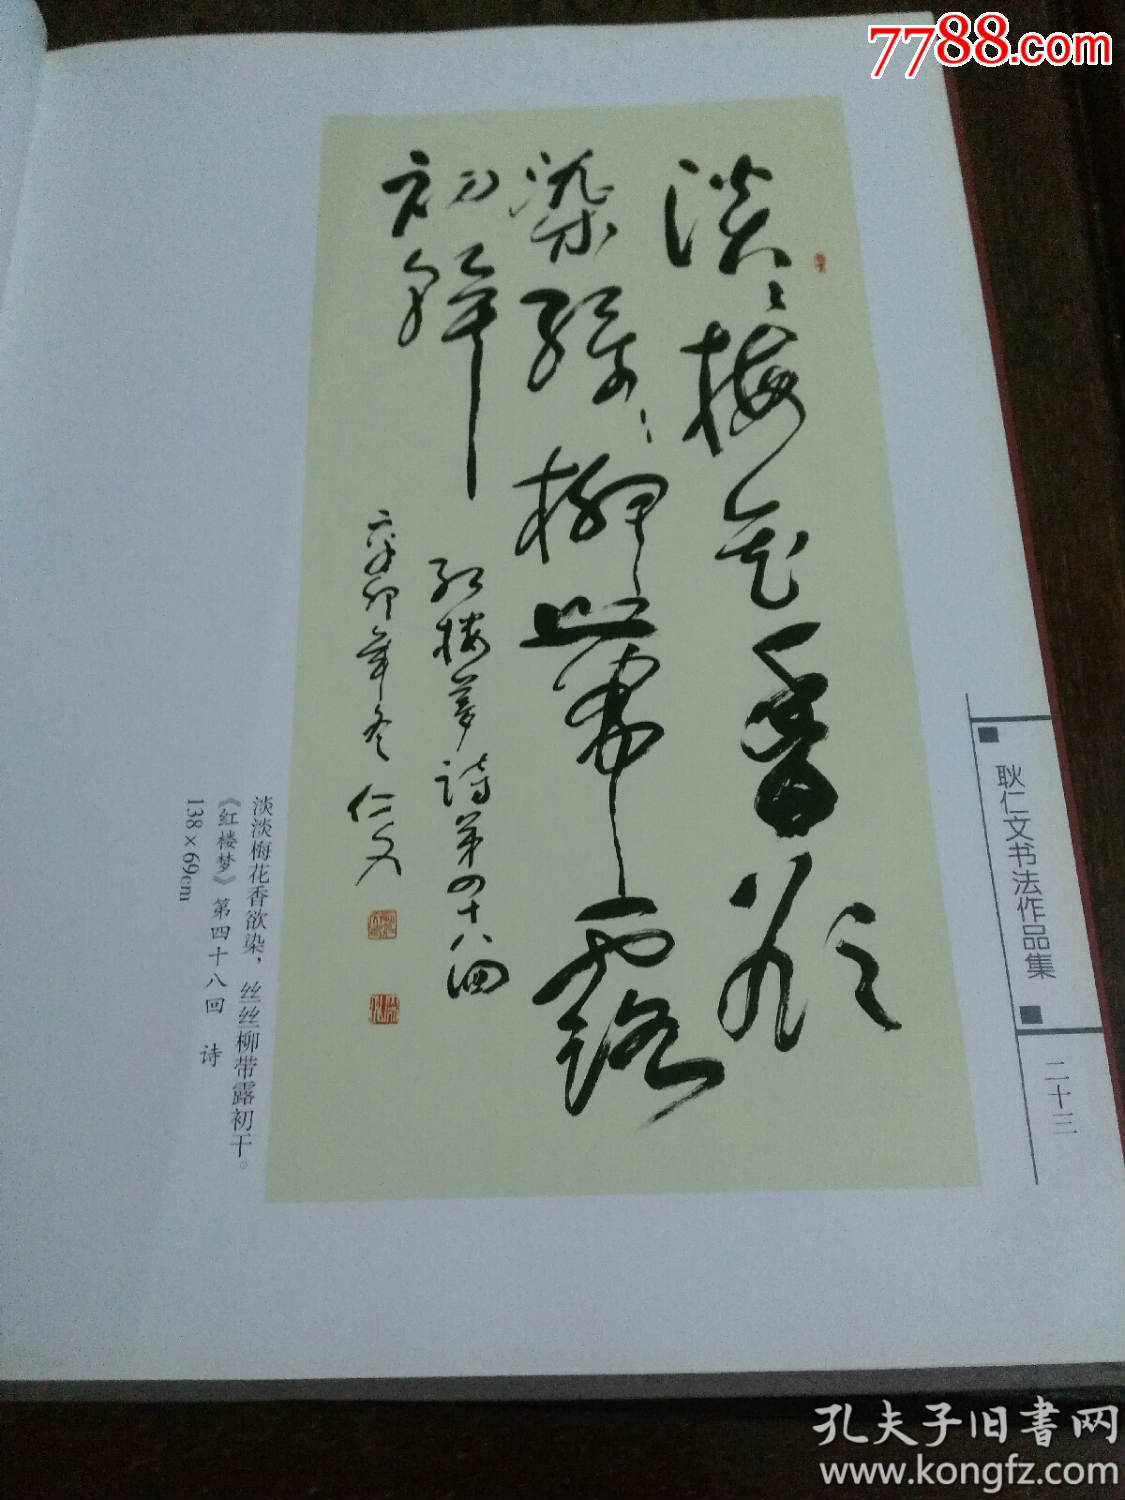 7788.com
淡〻梅花香欲
染丝〻柳带露
初乾
红楼梦诗第四十八回
辛卯年冬 仁文
淡淡梅花香欲染，丝丝柳带露初干。
《红楼梦》第四十八回 诗
138×69cm
耿仁文书法作品集
二十三
孔夫子旧书网
www.kongfz.com